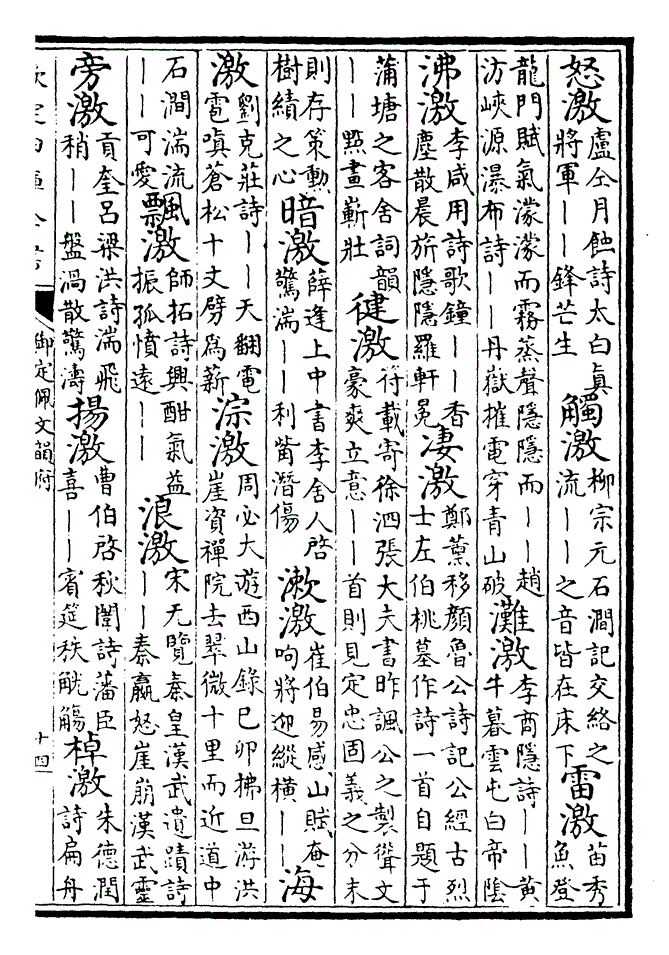 怒激盧仝月蝕詩太白真將軍——鋒芒生觸激柳宗元石澗記交絡之流——之音皆在床下雷激苗秀魚登
龍門賦氣濛濛而霧蒸聲隱隱而——趙汸峽源瀑布詩——丹嶽摧電穿青山破灘激李商隱詩——黃牛暮雲屯白帝陰
沸激李咸用詩歌鐘——香塵散晨旅隱隱羅軒冕凄激鄭薰移顏魯公詩記公經古烈士左伯桃墓作詩一首自題于
蒲塘之客舍詞韻——㸃畫嶄壯健激符載寄徐泗張大夫書昨諷公之製聳文豪爽立意——首則見定忠固義之分末
則存策勳樹績之心暗激薛逢上中書李舍人啓驚湍——利觜潛傷漱激崔伯易感山賦奄响將迎縱橫——海
激劉克莊詩——天翻電雹嗔蒼松十丈劈為薪淙激周必大遊西山錄己卯拂旦游洪崖資禪院去翠微十里而近道中
石澗湍流——可愛飄激師拓詩興酣氣益振孤憤遠——浪激宋无覽秦皇漢武遺蹟詩——秦嬴怒崖崩漢武靈
旁激貢奎呂梁洪詩湍飛稍——盤渦散驚濤揚激曹伯啓秋闈詩藩臣喜——賓筵秩觥觴棹激朱德潤詩扁舟
欽定四庫全書
御定佩文韻府
十四